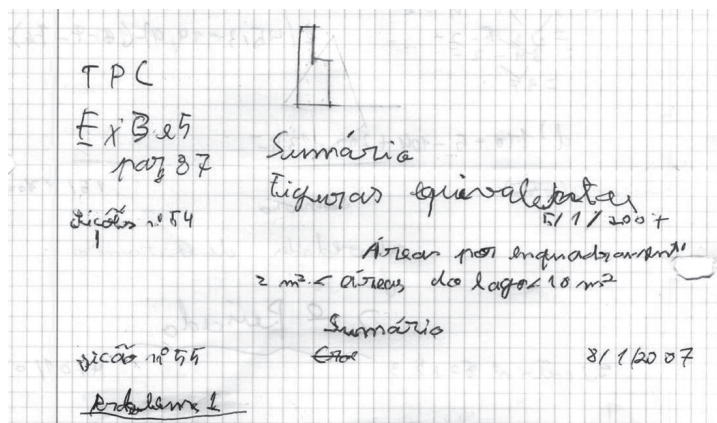 TPC
Ex 3 e 5
pag 87
Sumário
Figuras equivalentes
lição nº 54
5/1/2007
Áreas por enquadrament
2 m² < áreas do lago < 10 m²
Sumário
lição nº 55
8/1/2007
Problema 1